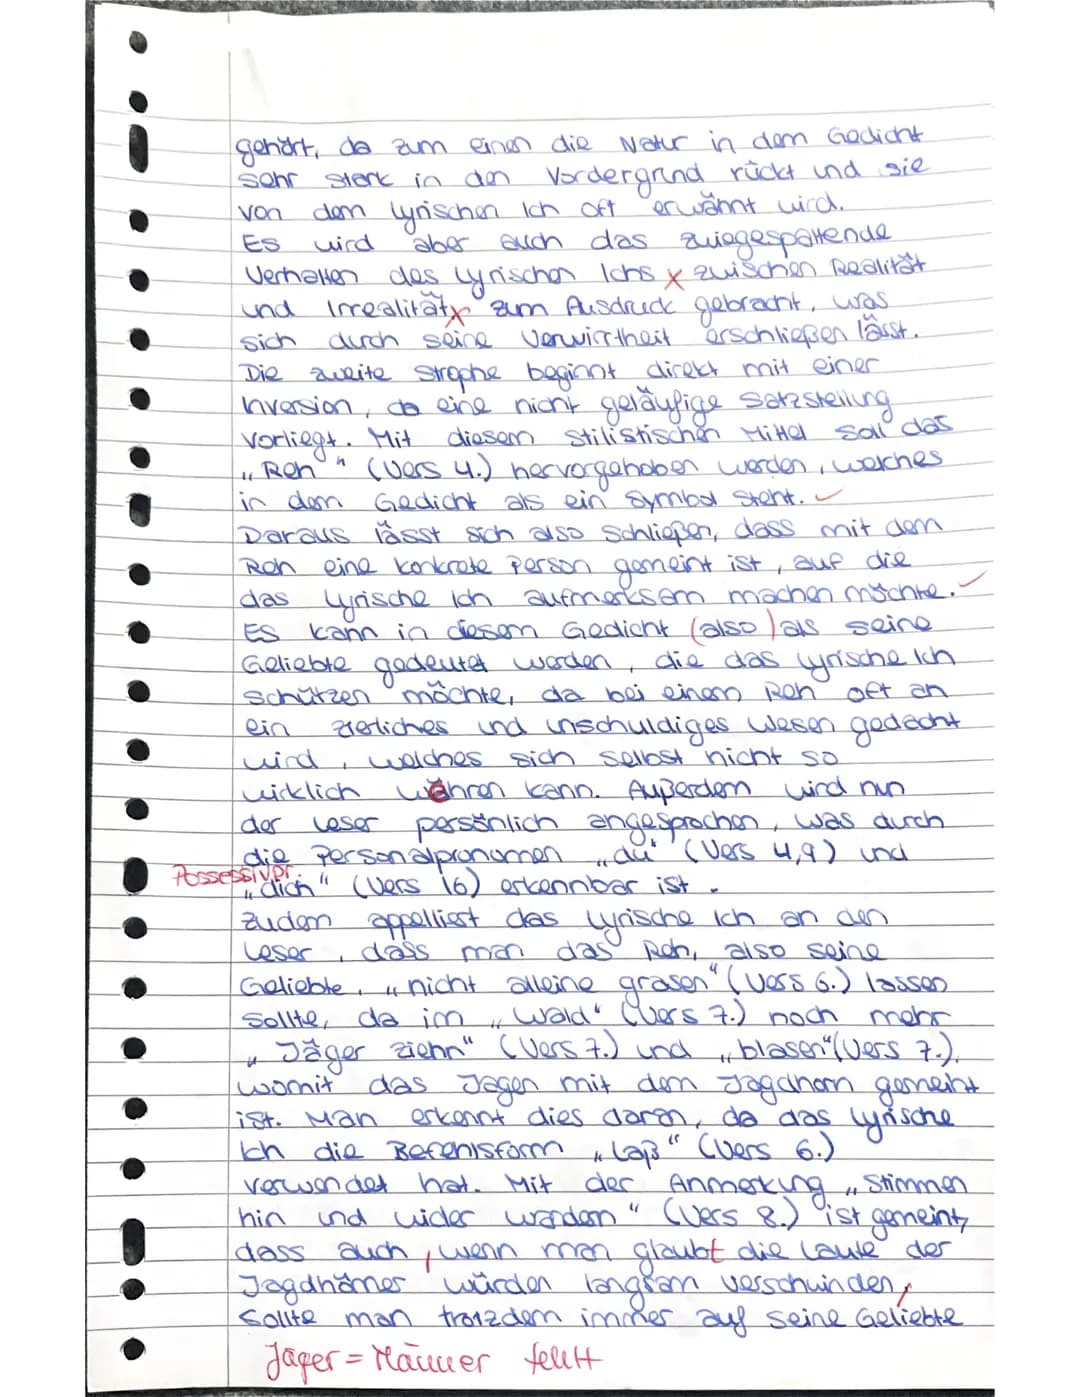 gehört, da zum einen die Natur in dem Gedicht
sehr stark in den Vordergrund rückt und sie
von dem lyrischen Ich oft erwähnt wird.
Es wird aber auch das zwiegespaltende
Verhalten des lyrischen Ichs x zwischen Realität
und Irrealität x zum Ausdruck gebracht, was
sich durch seine Verwirrtheit erschließen lässt.
Die zweite Strophe beginnt direkt mit einer
Inversion, da eine nicht geläufige Satzstellung
vorliegt. Mit diesem stilistischen Mittel soll das
„Reh" (Vers 4.) hervorgehoben werden, welches
in dem Gedicht als ein Symbol steht. ✓
Daraus lässt sich also schließen, dass mit dem
Reh eine konkrete Person gemeint ist, auf die
das lyrische Ich aufmerksam machen möchte. ✓
Es kann in diesem Gedicht (also) als seine
Geliebte gedeutet werden, die das lyrische Ich
schützen möchte, da bei einem Reh oft an
ein zierliches und unschuldiges Wesen gedacht
wird, welches sich selbst nicht so
wirklich wehren kann. Außerdem wird nun
der Leser persönlich angesprochen, was durch
die Personalpronomen „du" (Vers 4,9) und
Possessivpr. „dich" (Vers 16) erkennbar ist.
Zudem appelliert das lyrische Ich an den
Leser, dass man das Reh, also seine
Geliebte, „nicht alleine grasen" (Vers 6.) lassen
sollte, da im „Wald" (Vers 7.) noch mehr
„Jäger ziehn" (Vers 7.) und „blasen" (Vers 7.),
womit das Jagen mit dem Jagdhorn gemeint
ist. Man erkennt dies daran, da das lyrische
Ich die Befehlsform „laß" (Vers 6.)
verwendet hat. Mit der Anmerkung „Stimmen
hin und wider wandern" (Vers 8.) ist gemeint,
dass auch, wenn man glaubt die Laute der
Jagdhörner würden langsam verschwinden,
sollte man trotzdem immer auf seine Geliebte
Jäger = Männer fehlt